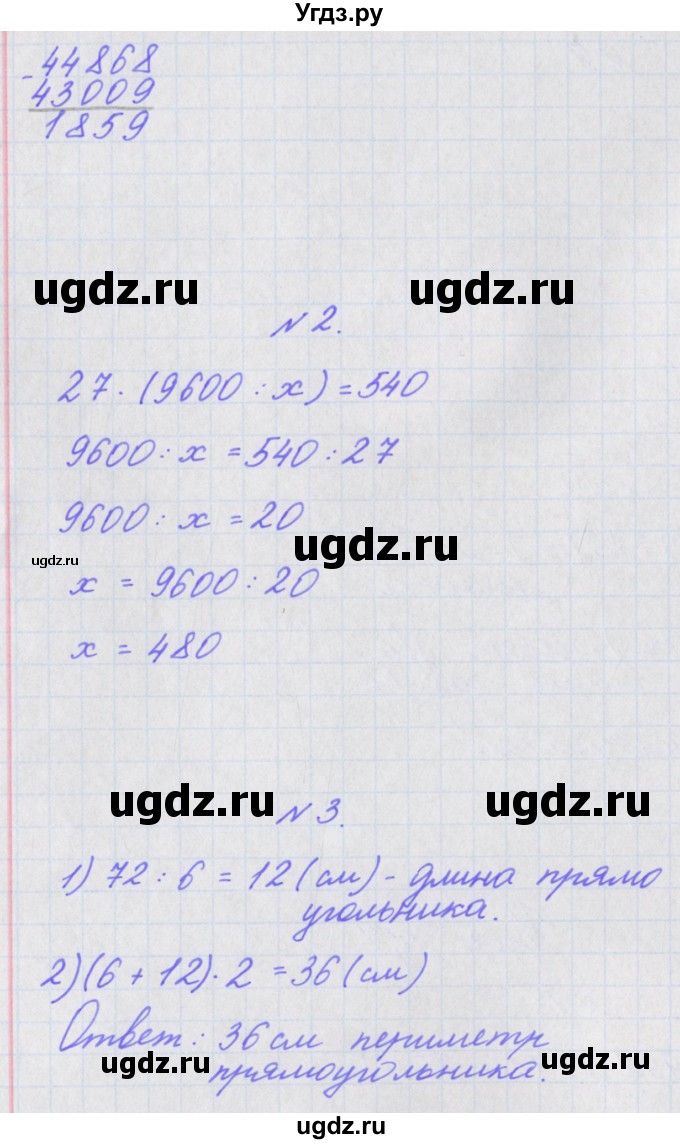 Угдз.ру
- 44868
43009
1859
ugdz.ru ugdz.ru
№ 2.
27 · (9600 : x) = 540
9600 : x = 540 : 27
9600 : x = 20
ugdz.ru
ugdz.ru
x = 9600 : 20
x = 480
ugdz.ru ugdz.ru
№ 3.
1) 72 : 6 = 12 (см) - длина прямо
угольника.
2) (6 + 12) · 2 = 36 (см)
Ответ: 36 см периметр
ugdz.ru ugdz.ru
прямоугольника.
ugdz.ru